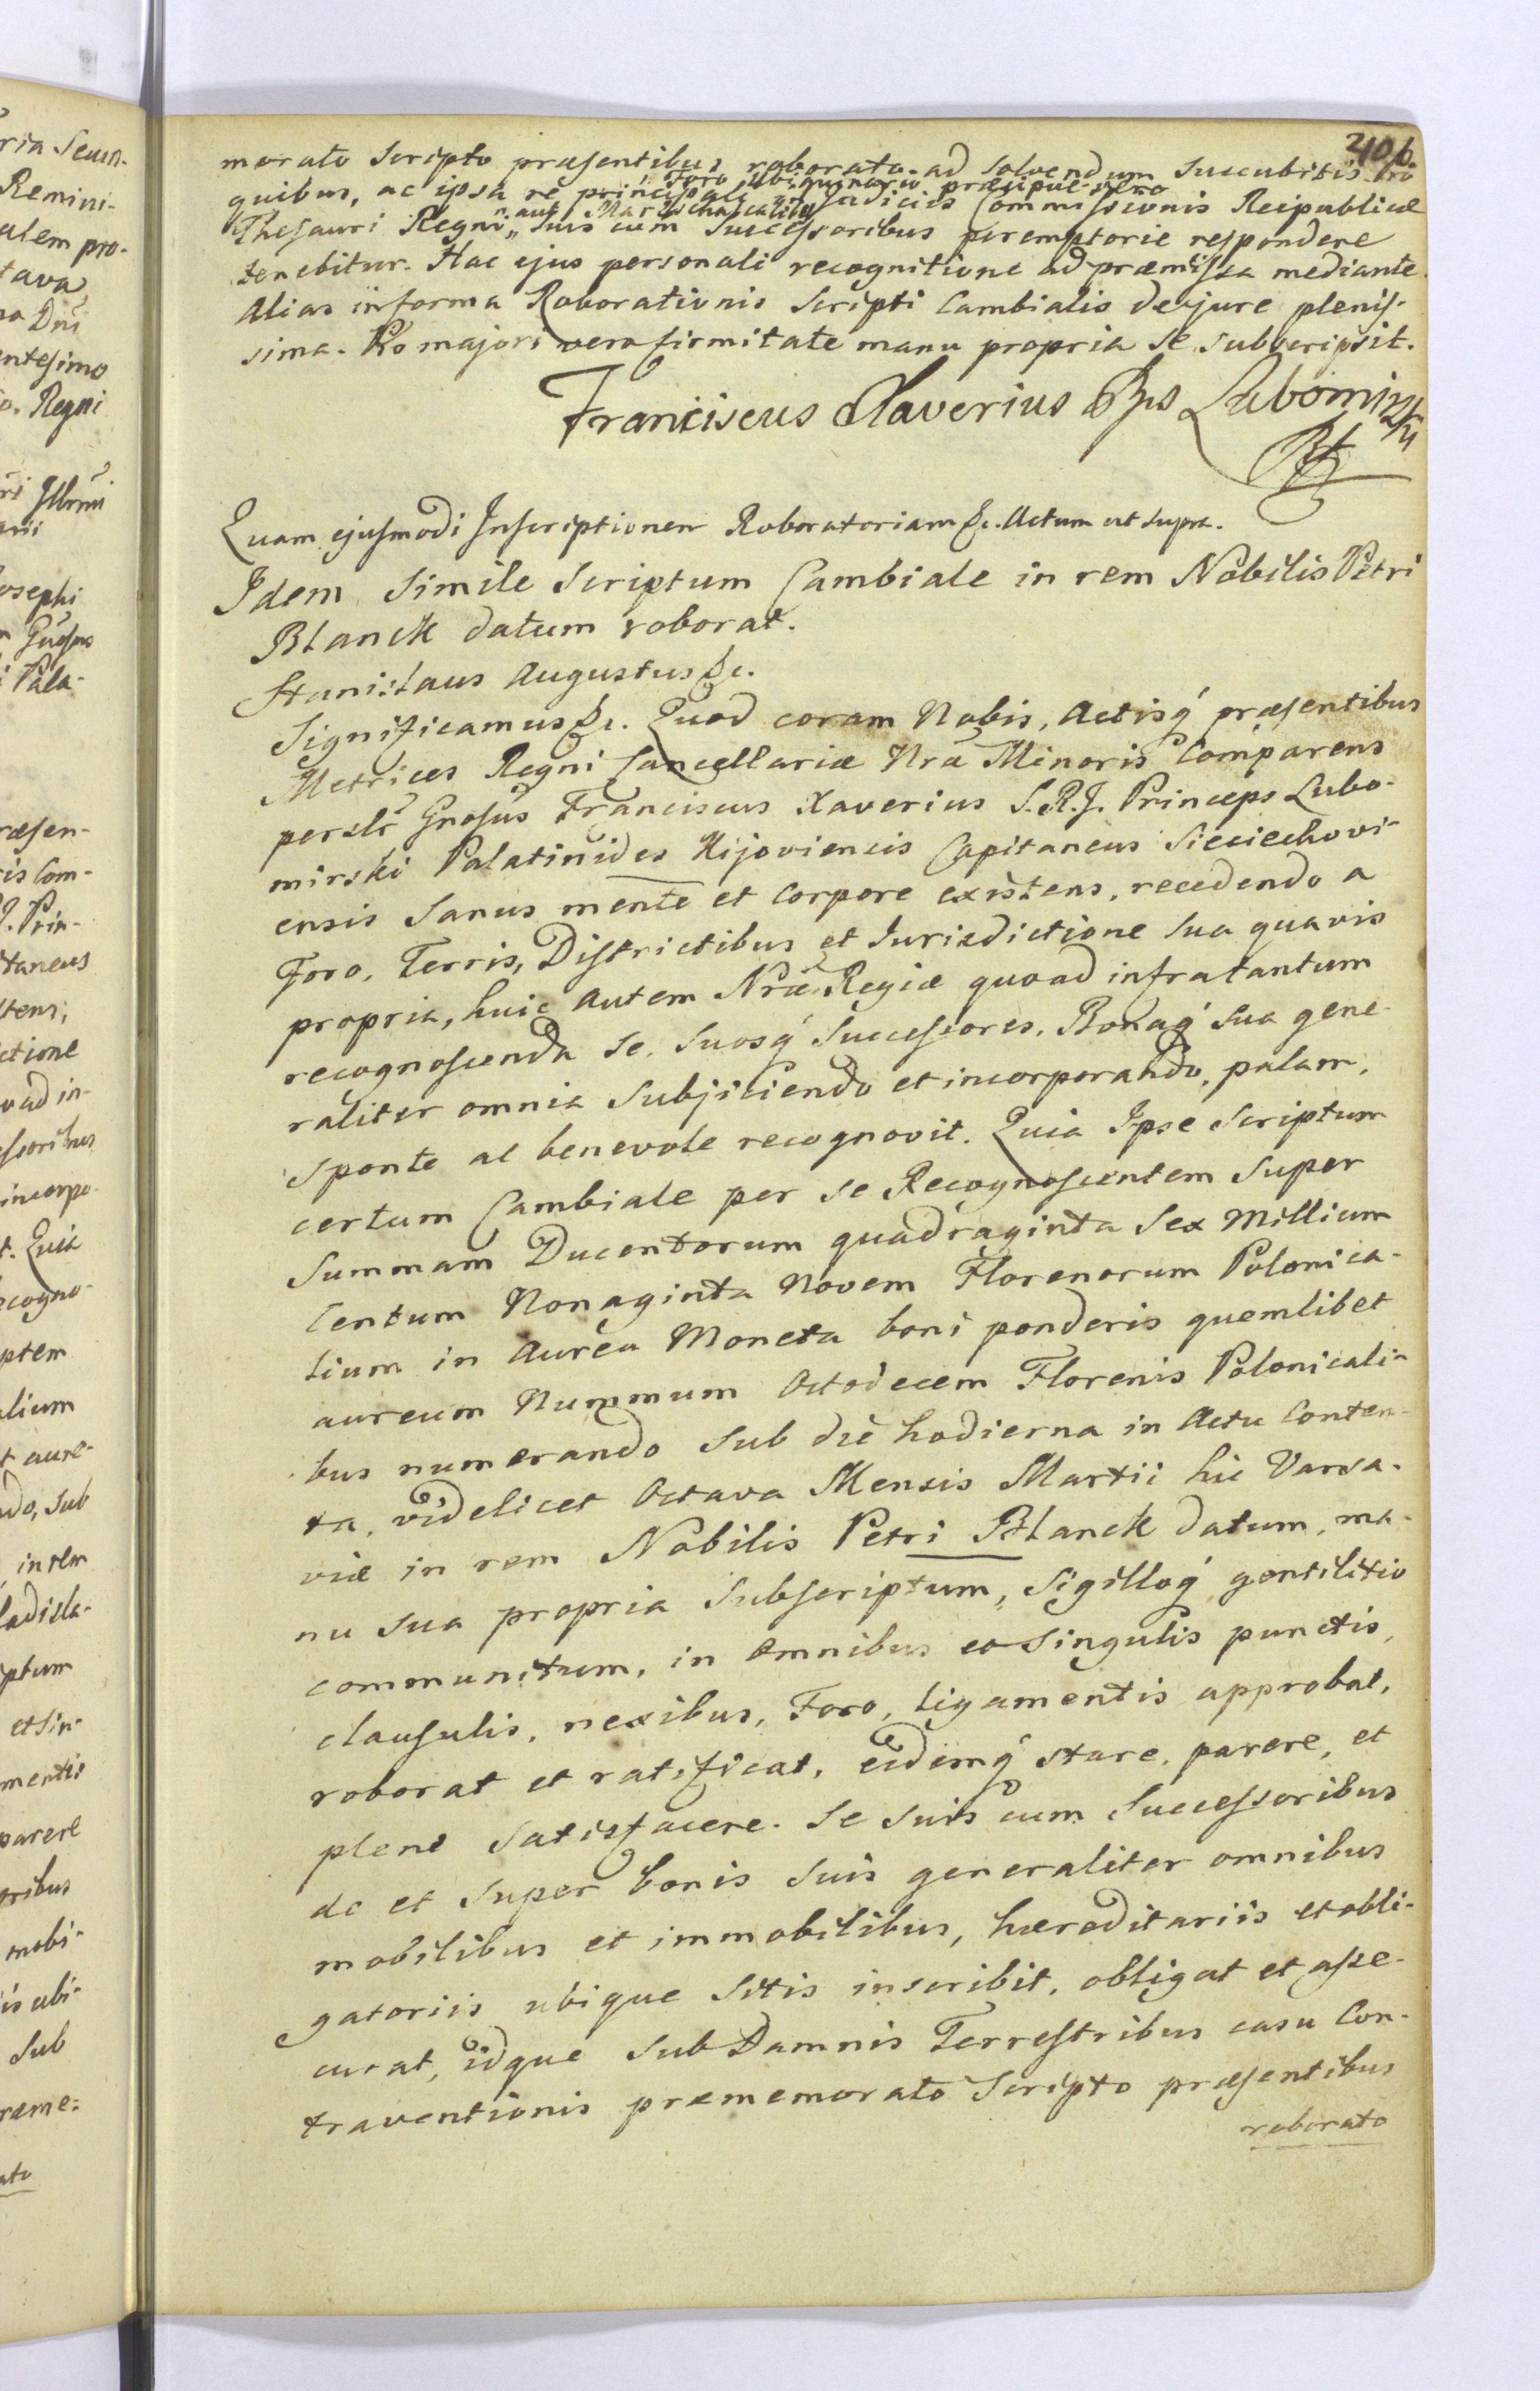 406.
morato Scripto præsentibus roborato ad solvendum succubitis pro
quibus, ac ipsa re principali in Foro ubiquinario præcipue vero
Judiciis Commissionis Reipublicæ
Thesauri Regni aut Marschalcalibus suis cum Successoribus peremptorie respondere
tenebitur. Hac ejus personali recognitione ad præmissa mediante.
Alias in forma Roborationis Scripti Cambialis de jure plenis-
sima. Pro majori vero firmitate manu propria se subscripsit.
Franciscus Xaverius Lubomirski
Quam ejusmodi Inscriptionem Roboratoriam &c. Actum ut supra.
Idem Simile Scriptum Cambiale in rem Nobilis Petri
Blanck datum roborat.
Stanislaus Augustus &c.
Significamus &c. Quod coram Nobis, Actisq́ præsentibus
Metrices Regni Cancellariæ Nræ Minoris Comparens
perslr Gnosus Franciscus Xaverius S. R. J. Princeps Lubo-
mirski Palatinides Kijoviensis Capitaneus Sieciechovi-
ensis Sanus mente et Corpore existens, recedendo a
Foro, Terris, Districtibus et Jurisdictione Sua quavis
propria, huic autem Nræ Regiæ quoad infratantum
recognoscenda se, Suosq́ Successores, Bonaq́ sua gene-
raliter omnia Subjiciendo et incorporando, palam,
Sponte ac benevole recognovit. Quia Ipse Scriptum
certum Cambiale per se Recognoscentem Super
Summam Ducentorum quadraginta Sex Millium
Centum Nonaginta Novem Florenorum Polonica-
lium in Aurea Moneta boni ponderis quemlibet
aureum Nummum Octodecem Florenis Polonicali-
bus numerando Sub die hodierna in Actu Conten-
ta, videlicet Octava Mensis Martii hic Varsa-
viæ in rem Nobilis Petri Blanck datum, ma-
nu sua propria Subscriptum, Sigilloq́ gentilitio
communitum, in omnibus et Singulis punctis,
clausulis, nexibus, Foro, ligamentis approbat,
roborat et ratificat, eidemq́ stare, parere, et
plene Satisfacere. Se Suis cum Successoribus
de et Super bonis Suis generaliter omnibus
mobilibus et immobilibus, hæreditariis et obli-
gatoriis ubique Sitis inscribit, obligat et asse-
curat, idque Sub Damnis Terrestribus casu Con-
traventionis præmemorato Scripto præsentibus
roborato